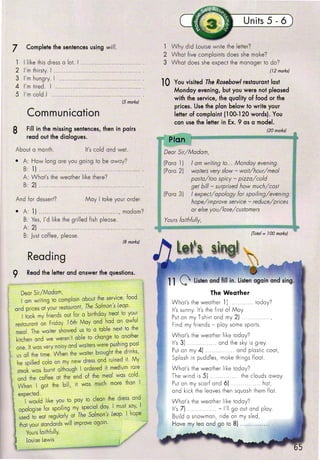 Units 5 - 6
3
7 Complete the sentences using will.
1 I like this dress a lot. I
2 I'm thirsty. I
3 I'm hungry. I
4 I'm tired. I
5 I'm cold. I
(5 marks)
Communication
8 Fill in the missing sentences, then in pairs
read out the dialogues.
About a month. It's cold and wet.
• A: How long are you going to be away?
B: 1)
A: What's the weather like there?
B: 2)
And for dessert? May I take your order
• A: 1) , madam?
B: Yes, I'd like the grilled fish please.
A: 2)
B: Just coffee, please.
(8 marks)
Reading
9 Read the letter and answer the questions.
Dear Sir/Madam,
I am writing to complain about the service, food
and prices at your restaurant, The Salmon's Leap.
I took my friends out for a birthday treat to your
restaurant on Friday 16th May and had an awful
meal. The waiter showed us to a table next to the
kitchen and we weren't able to change to another
one. It was very noisy and waiters were pushing past
us all the time. When the waiter brought the drinks,
he spilled cola on my new dress and ruined it. My
steak was burnt although I ordered it medium rare
and the coffee at the end of the meal was cold.
When I got the bill, it was much more than I
expected.
I would like you to pay to clean the dress and
apologise for spoiling my special day. I must say, I
used to eat regularly at The Salmon's Leap. I hope
that your standards will improve again.
Yours faithfully,
Louise Lewis
1 Why did Louise write the letter?
2 What five complaints does she make?
3 What does she expect the manager to do?
(12 marks)
10 You visited The Rosebowl restaurant last
Monday evening, but you were not pleased
with the service, the quality of food or the
prices. Use the plan below to write your
letter of complaint (100-120 words). You
can use the letter in Ex. 9 as a model.
(20 marks)
Plan
Dear Sir/Madam,
(Para 1) I am writing to... Monday evening.
(Para 2) waiters very slow – wait/hour/meal
pasta/too spicy – pizza/cold
get bill – surprised how much/cost
(Para 3) I expect/apology for spoiling/evening
hope/improve service – reduce/prices
or else you/lose/customers
Yours faithfully,
(Total = 100 marks)
Let's sing!
11 Listen and fill in. Listen again and sing.
The Weather
What's the weather 1) today?
It's sunny. It's the first of May.
Put on my T-shirt and my 2)
Find my friends – play some sports.
What's the weather like today?
It's 3) and the sky is grey.
Put on my 4) and plastic coat,
Splash in puddles, make things float.
What's the weather like today?
The wind is 5) the clouds away.
Put on my scarf and 6) hat,
and kick the leaves then squash them flat.
What's the weather like today?
It's 7) – I'll go out and play.
Build a snowman, ride on my sled,
Have my tea and go to 8)
65